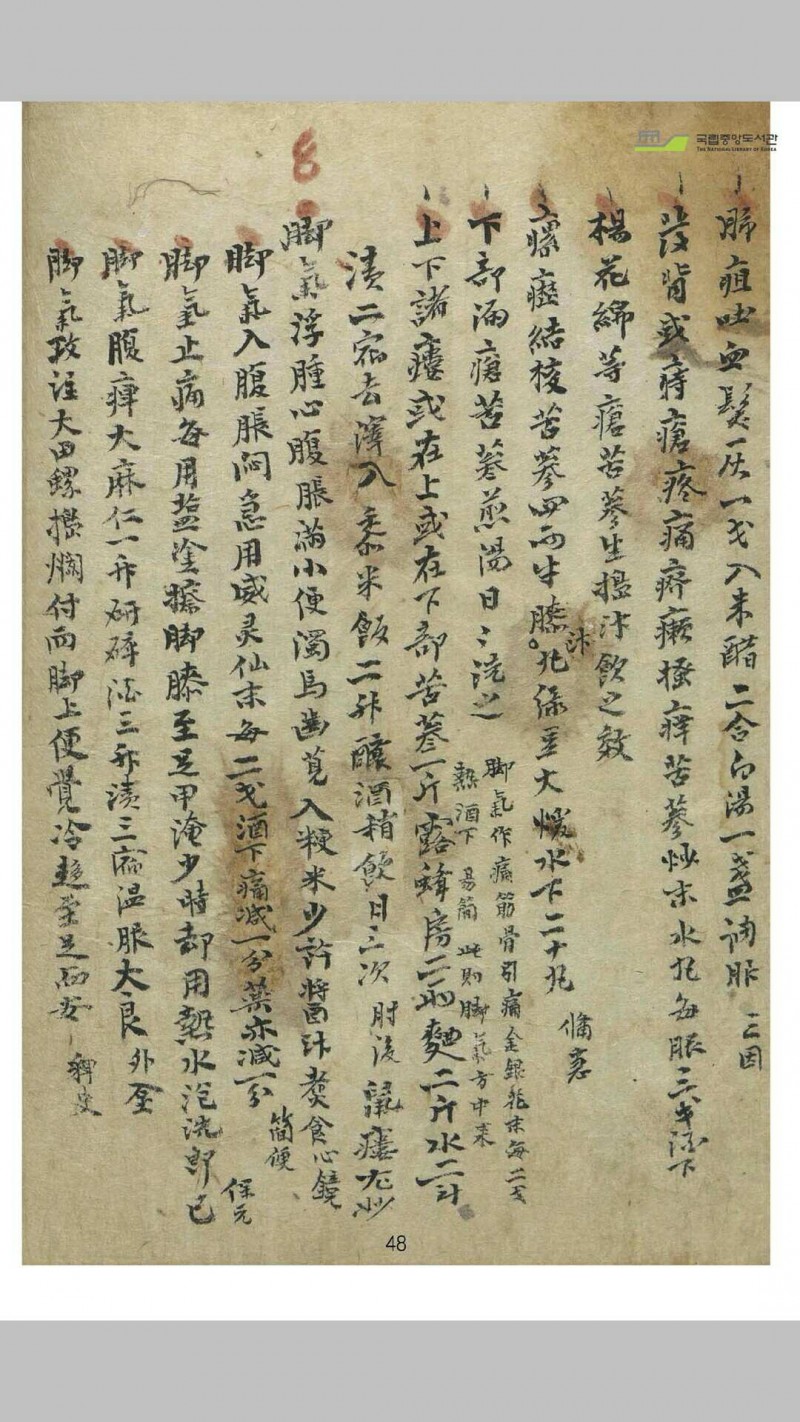 국립중앙도서관
THE NATIONAL LIBRARY OF KOREA
肺疽吐血髮灰一戔入米醋二合白湯一盞調服 三因
發背或痔瘡疼痛疥癩搔痒苦蔘炒末水丸每服三戔酒下
楊花綿等瘡苦蔘生搗汁飮之效
瘰癧結核苦蔘四兩牛膝汁丸綠豆大煖水下二十丸
下部漏瘡苦蔘煎湯日〻洗之
脚氣作痛筋骨引痛金銀花末每二戔
熱酒下 易簡 此則脚氣方中來
上下諸瘻或在上或在下部苦蔘一斤露蜂房二兩麴二斤水二斗
漬二宿去滓入黍米飯二升釀酒稍飮日三次 肘後 鼠瘻尤妙
脚氣浮腫心腹脹滿小便濁馬齒莧入粳米少許醬汁煑食 心鏡
脚氣入腹脹悶急用威灵仙末每二戔酒下痛減一分藥亦減一分
簡便
脚氣止痛每用盐塗擦脚膝至足甲淹少時却用熱水泡洗卽已
保元
脚氣腹痺大麻仁一升研碎酒三升漬三宿温服大良 外臺
脚氣攻注大田螺搗爛付兩脚上便覺冷趍至足而安 稗史
8
48